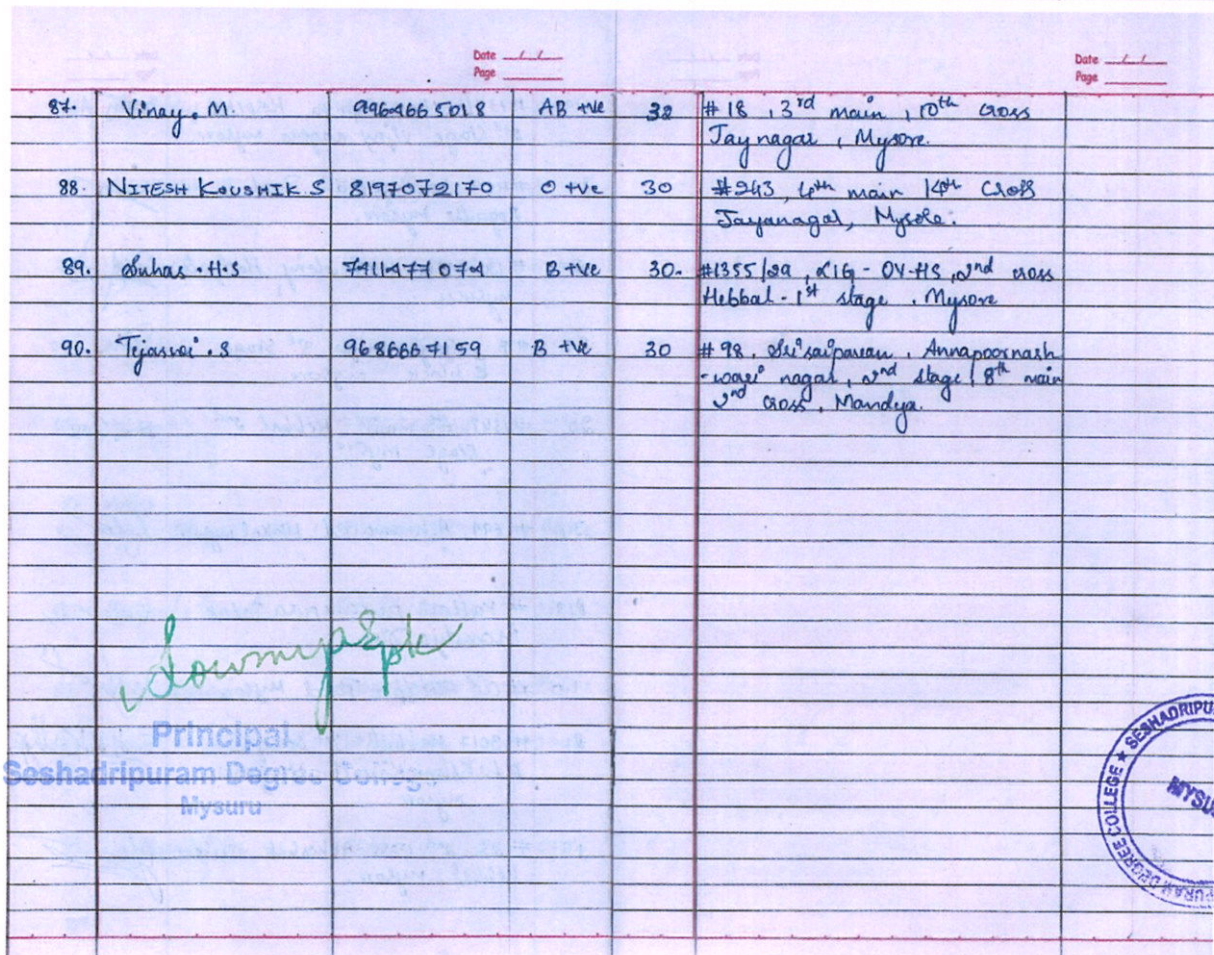 Date
Page
Date
Page
87. Vinay . M. 9964665018 AB +ve 32 # 18 , 3rd main , 10th cross
Jaynagar , Mysore.
88. NITESH KOUSHIK . S 8197072170 O +ve 30 #243, 4th main 14th Cross
Jayanagar, Mysore.
89. Suhas . H.S B +ve 30. #1355/29 , LIG - OY-HS, 2nd cross
Hebbal - 1st stage . Mysore
90. Tejasvi . S 9686667159 B +ve 30 # 98, Annapoornash
-wari nagar, 2nd stage, 8th main
2nd cross, Mandya.
Principal
Seshadripuram Degree College
Mysuru